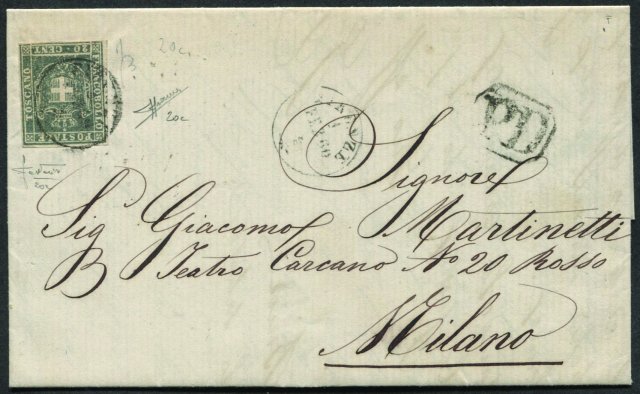 FRANCO BOLLO
20 CENT
POSTALE
20c
20c
60
PD
Signore
Sig Giacomo Martinetti
B Teatro Carcano No 20 Rosso
Milano